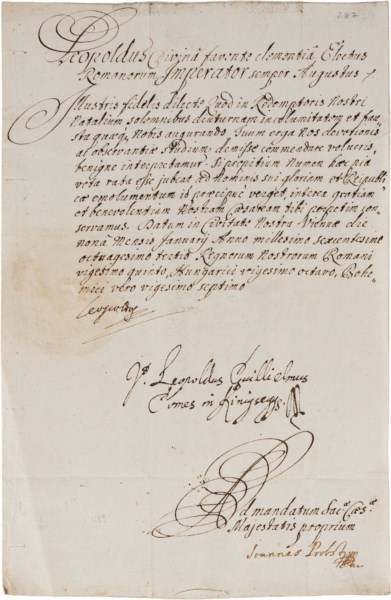 282
Leopoldus Divinâ favente clementiâ, Electus
Romanorum Imperator semper Augustus
Illustris fidelis dilecte Quod in Redemptoris Nostri
Natalium solemnibus diuturnam incolumitatem et fau-
sta quæq; Nobis augurando Tuum erga Nos devotionis
ac observantiæ studium, demisse commendare volueris,
benigne interpretamur. Si propitium Numen hæc pia
vota rata esse jubeat, ad Nominis sui gloriam et Reipubli-
cæ emolumentum id præcipuè verget, interea gratiam
et benevolentiam Nostram Cæsaream tibi porrò con-
servamus. Datum in Civitate Nostra Viennæ die
nonâ Mensis January Anno millesimo sexcentesimo
octuagesimo tertio Regnorum Nostrorum Romani
vigesimo quinto, Hungarici vigesimo octavo, Bohe-
mici vero vigesimo septimo
Leopoldus
Leopoldus Guillielmus
Comes in Kinigsegg
Ad mandatum Sac.ᵃ Cæs.ᵃ
Majestatis proprium
Joannes